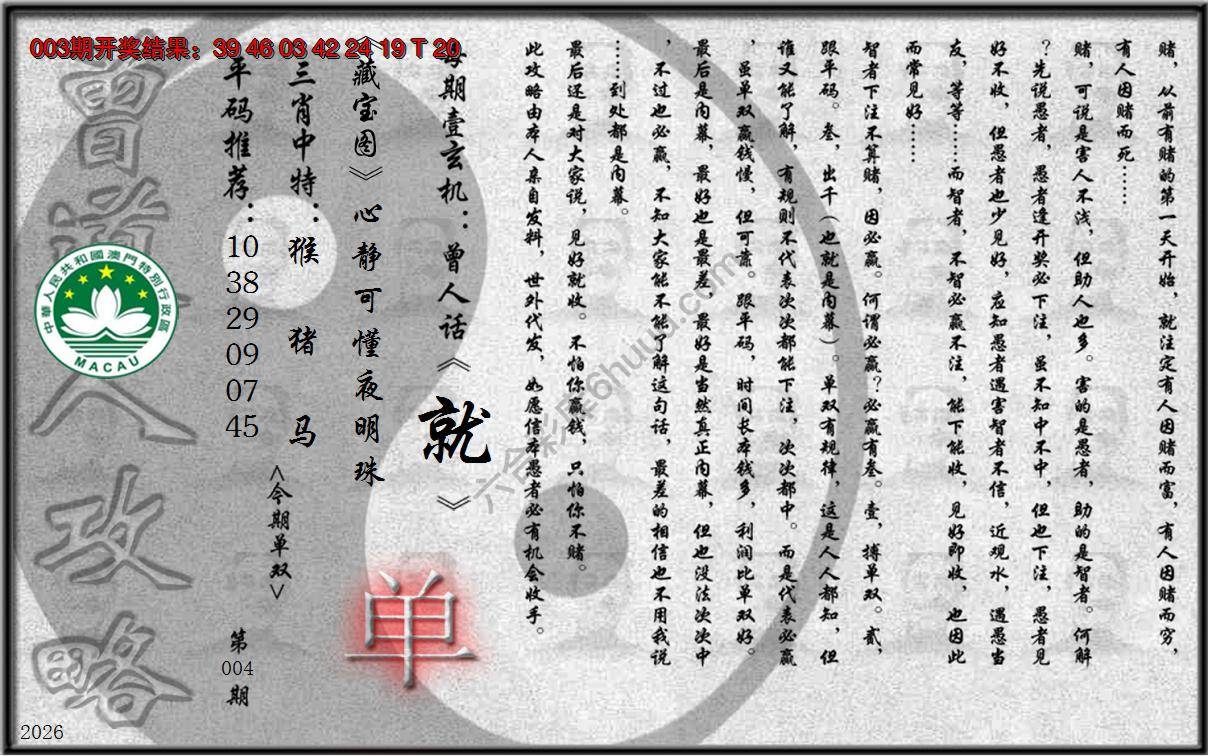 003期开奖结果：39 46 03 42 24 19 T 20
赌，从前有赌的第一天开始，就注定有人因赌而富，有人因赌而穷，
有人因赌而死……
赌，可说是害人不浅，但助人也多。害的是愚者，助的是智者。何解
？先说愚者，愚者逢开奖必下注，虽不知中不中，但也下注，愚者见
好不收，但愚者也少见好，应知愚者遇害智者不信，近观水，遇愚当
友，等等……而智者，不智必赢不注，能下能收，见好即收，也因此
而常见好……
智者下注不算赌，因必赢。何谓必赢？必赢有叁。壹，搏单双。贰，
跟平码。叁，出千（也就是内幕）。单双有规律，这是人人都知，但
谁又能了解，有规则不代表次次都能下注，次次都中。而是代表必赢
，虽单双赢钱慢，但可靠。跟平码，时间长本钱多，利润比单双好。
最后是内幕，最好也是最差，最好是当然真正内幕，但也没法次次中
，不过也必赢，不知大家能不能了解这句话，最差的相信也不用我说
……到处都是内幕。
最后还是对大家说，见好就收。不怕你赢钱，只怕你不赌。
此攻略由本人亲自发料，世外代发，如愿信本愚者必有机会收手。
每期壹玄机：曾人话《就》
《藏宝图》心静可懂夜明珠
单
三肖中特：猴 猪 马
<今期单双>
平码推荐：10 38 29 09 07 45
第004期
曾道人攻略
中華人民共和國澳門特別行政區
MACAU
六合彩库6huuu.com
2026